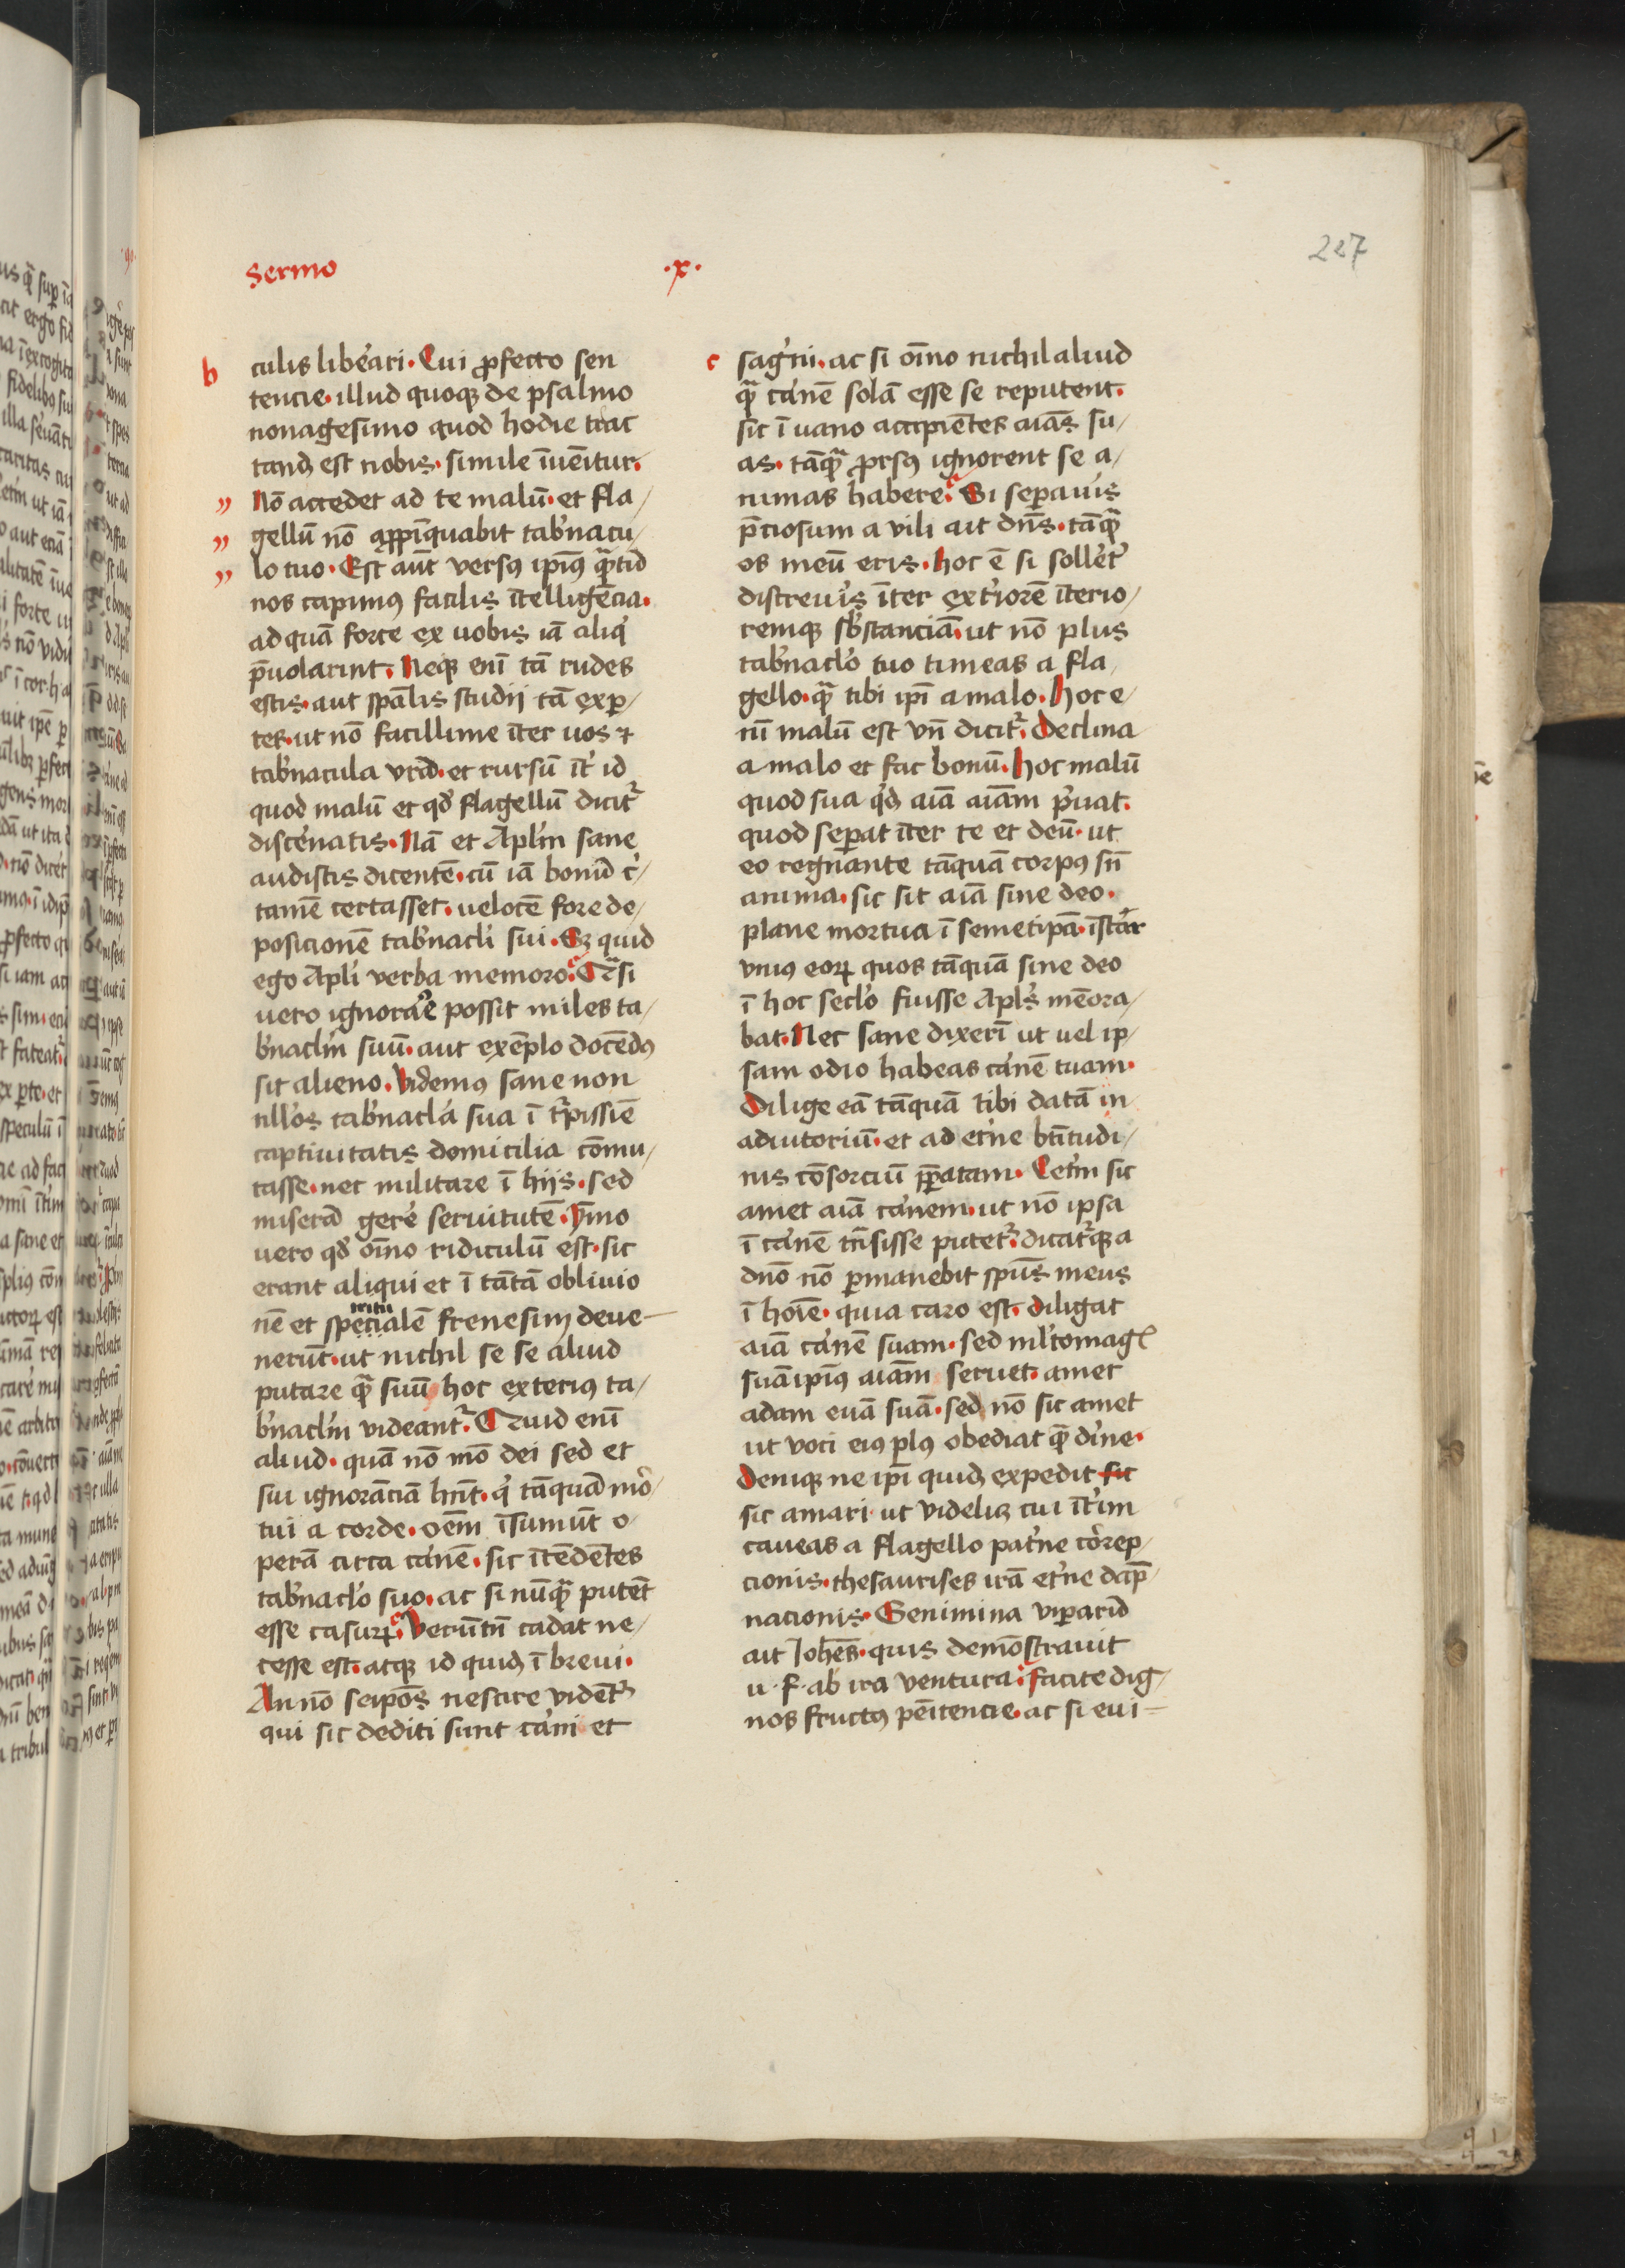 Sermo .x.
227
b
culis liberari. Cui ꝓfecto sen
tencie. illud quoqꝫ de psalmo
nonagesimo quod hodie trac
tandū est nobis. simile īuēitur.
Nō accedet ad te malū. et fla/
gellū nō appīquabit tab'nacu/
lo tuo. Est aūt versꝰ ipīꝰ quātū
nos capimꝰ facilis ītelligēcia.
ad quā forte ex uobis iā aliq'
p̄uolarint. Neqꝫ enī tā rudes
estis. aut spālis studij tā exp̱/
tes. ut nō facillime īter uos ⁊
tab'nacula vrā. et rursū īt' id
quod malū et qđ flagellū dicit᷑
discernatis. Nā et Aplm̄ sane
audistis dicentē. cū iā bonū c'/
tamē certasset. velocē fore de/
posicionē tab'nacl'i sui. Sꝫ quid
ego Apl'i verba memoro. Q̄si
uero ignorare possit miles ta/
b'naclm̄ suū. aut exēplo docēdꝰ
sit alieno. Videmꝰ sane non
nll'os tab'nacl'a sua ī t᷑pissiē
captiuitatis domicilia cōmu/
tasse. nec militare ī hijs. sed
miserā gere' seruitutē. Ymo
uero qđ oīno ridiculū est. sic
erant aliqui et ī tātā obliuio
ritu
nē et specialē frenesim deue
nerūt. ut nichil se se aliud
putare quā suū hoc exteriꝰ ta/
b'naclm̄ videant᷑. Quid enī
aliud. quā nō mō dei sed et
sui ignorāciā hn̄t. q' tāquā mor/
tui a corde. oēm īsumūt o/
perā circa carnē. sic ītēdētes
tab'naclo suo. ac si nūquā putēt
esse casurꝝ. Verūtn̄ cadat ne/
cesse est. atqꝫ id quidē ī breui.
An nō seipōs nescire vident᷑
qui sic dediti sunt carni et
c
sag'ni. ac si oīno nichil aliud
quā carnē solā esse se reputent.
sic ī uano accipiētes aiās su/
as. tāquā ꝓrsꝰ ignorent se a/
nimas habere. Si sepauis
p̄ciosum a vili ait dn̄s. tāquā
os meū eris. hoc ē si soller't'
discreuis īter ext'iorē īterio/
remqꝫ sb'stanciā. ut nō plus
tab'naclo tuo timeas a fla/
gello. quā tibi ipī a malo. Hoc e/
nī malū est vn̄ dicit᷑. Declina
a malo et fac bonū. Hoc malū
quod sua q'dē aiā aiām p'uat.
quod sepat īter te et deū. ut
eo regnante tāquā corpꝰ sn̄
anima. sic sit aiā sine deo.
plane mortua ī semetipā. īstar
vniꝰ eorꝝ quos tāquā sine deo
ī hoc seclo fuisse Apl's mēora/
bat. Nec sane dixerī ut uel ip/
sam odio habeas carnē tuam.
Dilige eā tāquā tibi datā in
adiutoriū. et ad et'ne btītudi/
nis cōsorciū p̄patam. Cet'm sic
amet aiā carnem. ut nō ipsa
ī carnē trn̄sisse putet᷑. dicat᷑qꝫ a
dnō nō p̱manebit spūs meus
ī hoīe. quia caro est. diligat
aiā carnē suam. sed ml'tomagꝭ
suā ipīꝰ aiām seruet. amet
adam euā suā. sed nō sic amet
ut voci eiꝰ plꝰ obediat quā diuine.
Denīqꝫ ne ipī quidē expedit sic
sic amari ut videlicꝫ cui īt'im
caueas a flagello pat'ne correp/
cionis. thesaurises irā et'ne dāp/
nacionis. Genimina vip̱arū
ait Joh'es. quis demōstrauit
u. f. ab ira ventura. facite dig/
nos fructꝰ pēitencie. ac si eui